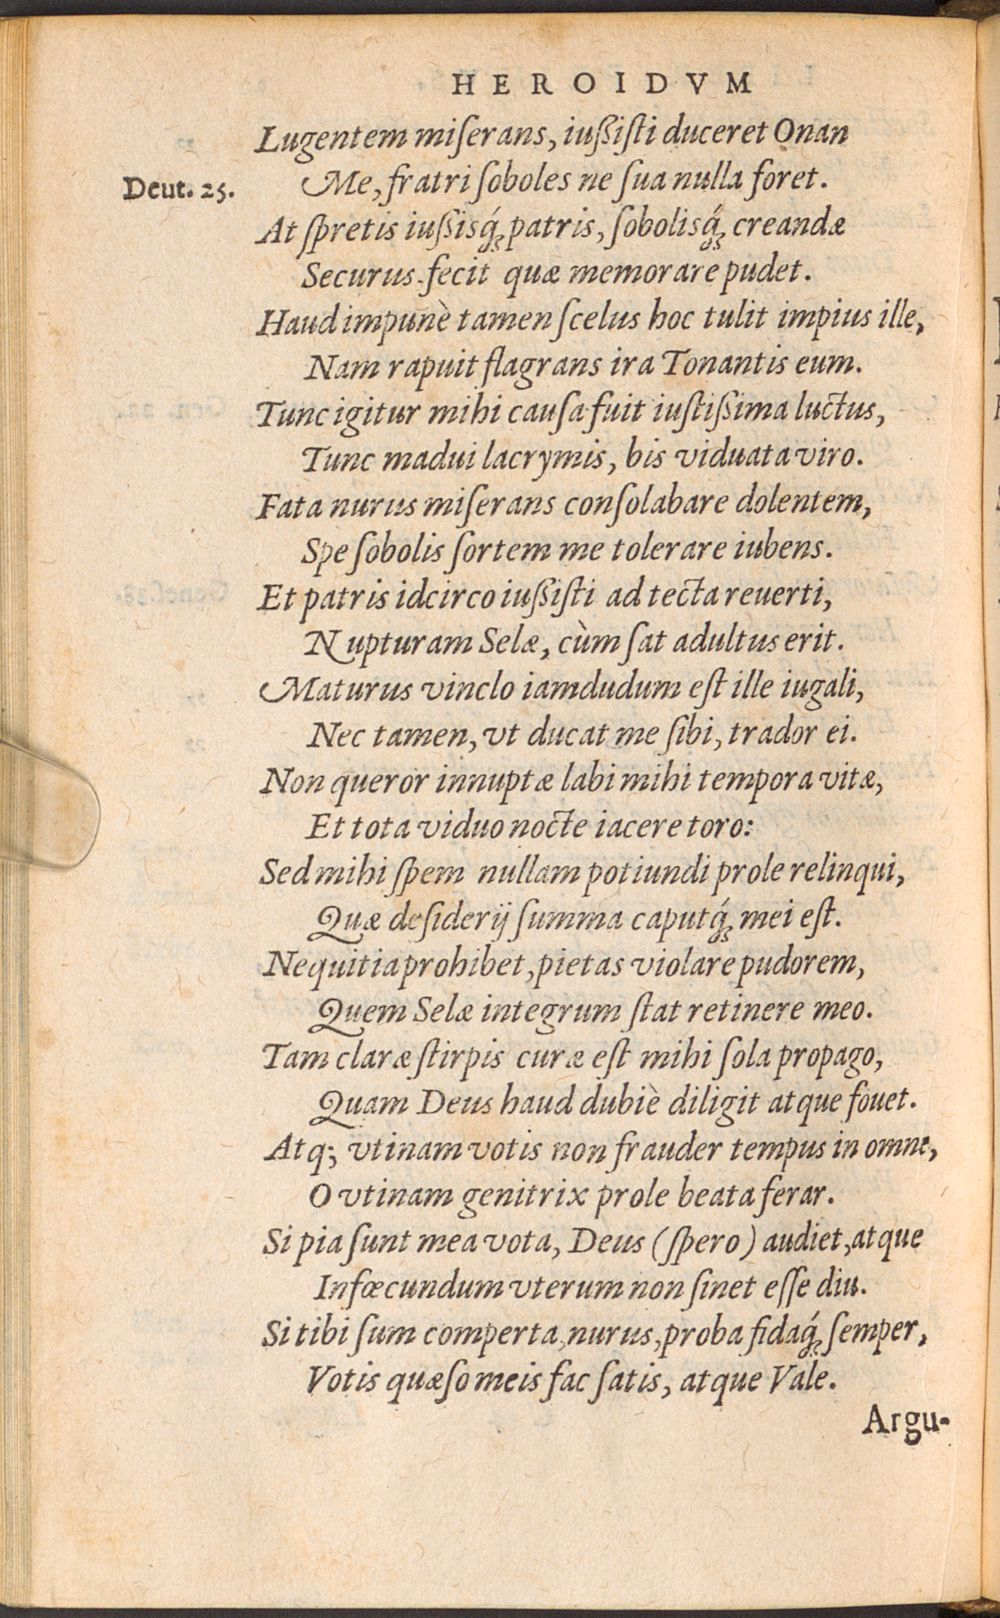 HEROIDVM
Lugentem miſerans, iußiſti duceret Onan
Deut. 25.
Me, fratri ſoboles ne ſua nulla foret.
At ſpretis iuſsisq́ꝫ patris, ſobolisq́ꝫ creandæ
Securus fecit quæ memorare pudet.
Haud impunè tamen ſcelus hoc tulit impius ille,
Nam rapuit flagrans ira Tonantis eum.
Tunc igitur mihi cauſa fuit iuſtißima luctus,
Tunc madui lacrymis, bis viduata viro.
Fata nurus miſerans conſolabare dolentem,
Spe ſobolis ſortem me tolerare iubens.
Et patris idcirco iußiſti ad tecta reuerti,
Nupturam Selæ, cùm ſat adultus erit.
Maturus vinclo iamdudum eſt ille iugali,
Nec tamen, vt ducat me ſibi, trador ei.
Non queror innuptæ labi mihi tempora vitæ,
Et tota viduo nocte iacere toro:
Sed mihi ſpem nullam potiundi prole relinqui,
Quæ deſiderij ſumma caputq́ꝫ mei eſt.
Nequitia prohibet, pietas violare pudorem,
Quem Selæ integrum ſtat retinere meo.
Tam claræ ſtirpis curæ eſt mihi ſola propago,
Quam Deus haud dubiè diligit atque fouet.
Atq; vtinam votis non frauder tempus in omne,
O vtinam genitrix prole beata ferar.
Si pia ſunt mea vota, Deus (ſpero) audiet, atque
Infœcundum vterum non ſinet eſſe diu.
Si tibi ſum comperta, nurus, proba fidaq́ꝫ ſemper,
Votis quæſo meis fac ſatis, atque Vale.
Argu-